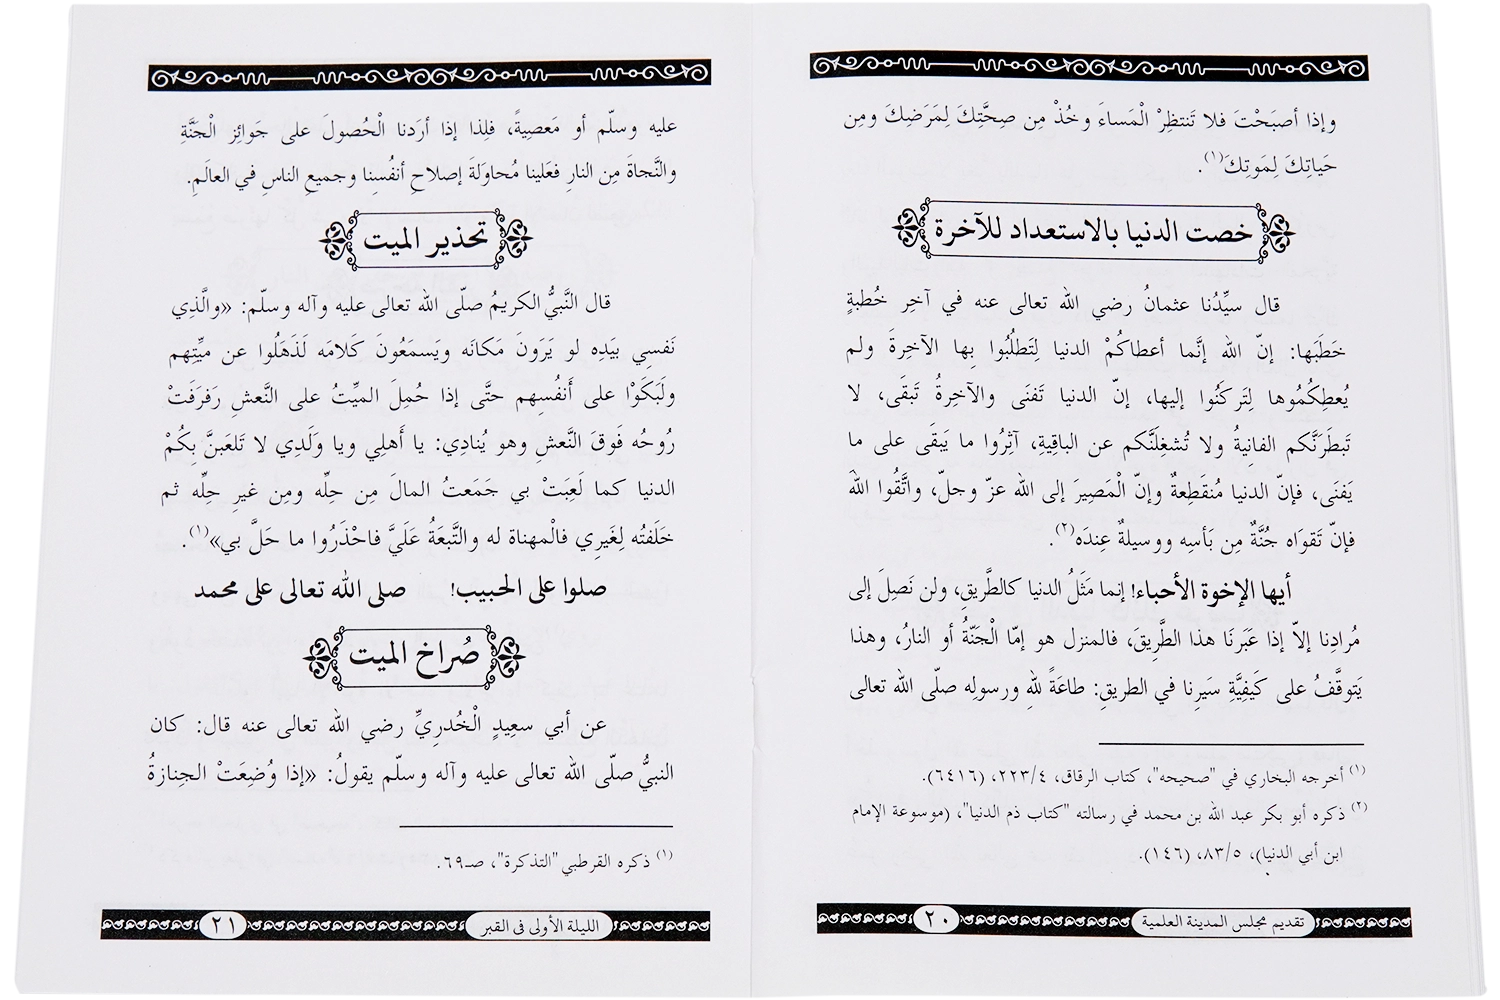 وإذا أصبَحْتَ فلا تَنتظِرْ الْمَساءَ وخُذْ مِن صِحَّتِكَ لِمَرَضِكَ ومِن
حَياتِكَ لِمَوتِكَ(١).
خصت الدنيا بالاستعداد للآخرة
قال سيِّدُنا عثمانُ رضي الله تعالى عنه في آخِرِ خُطبةٍ
خَطَبَها: إنّ الله إنَّما أعطاكُمْ الدنيا لِتَطلُبُوا بِها الآخِرةَ ولم
يُعطِكُمُوها لِتَركَنُوا إليها، إنّ الدنيا تَفنَى والآخِرةُ تَبقَى، لا
تَبطَرَنَّكم الفانِيةُ ولا تُشغِلَنَّكم عن الباقِيةِ، آثِرُوا ما يَبقَى على ما
يَفنَى، فإنّ الدنيا مُنقَطِعةٌ وإنّ الْمَصِيرَ إلى الله عزّ وجلّ، واتَّقُوا اللهَ
فإنّ تَقوَاه جُنَّةٌ مِن بَأسِه ووسيلةٌ عِندَه(٢).
أيها الإخوة الأحباء! إنما مَثَلُ الدنيا كالطَّريقِ، ولن نَصِلَ إلى
مُرادِنا إلاّ إذا عَبَرنَا هذا الطَّرِيقَ، فالمنزل هو إمّا الْجَنّةُ أو النارُ، وهذا
يَتوقَّفُ على كَيفِيَّةِ سَيرِنا في الطريقِ: طاعَةً للهِ ورسولِه صلّى الله تعالى
(١) أخرجه البخاري في "صحيحه"، كتاب الرقاق، ٢٢٣/٤، (٦٤١٦).
(٢) ذكره أبو بكر عبد الله بن محمد في رسالته "كتاب ذم الدنيا"، (موسوعة الإمام
ابن أبي الدنيا)، ٨٣/٥، (١٤٦).
تقديم مجلس المدينة العلمية ٢٠
عليه وسلّم أو مَعصِيةً، فلِذا إذا أرَدنا الْحُصولَ على جَوائِز الْجَنَّةِ
والنَّجاةَ مِن النارِ فعَلينا مُحاوَلةَ إصلاحِ أنفُسِنا وجميعِ الناسِ في العالَمِ.
تحذير الميت
قال النَّبيُّ الكريمُ صلّى الله تعالى عليه وآله وسلّم: «والَّذِي
نَفسِي بيَدِه لو يَرَونَ مَكانَه ويَسمَعُونَ كَلامَه لَذَهَلُوا عن ميِّتِهم
ولَبَكَوْا على أَنفُسِهم حتَّى إذا حُمِلَ الميِّتُ على النَّعشِ رَفرَفَتْ
رُوحُه فَوقَ النَّعشِ وهو يُنادِي: يا أَهلِي ويا وَلَدِي لا تَلعَبنَّ بِكُمْ
الدنيا كما لَعِبَتْ بي جَمَعتُ المالَ مِن حِلِّه ومِن غيرِ حِلِّه ثم
خَلَفتُه لِغَيرِي فالْمهناة له والتَّبعَةُ عَلَيَّ فاحْذَرُوا ما حَلَّ بي»(١).
صلوا على الحبيب! صلى الله تعالى على محمد
صُراخ الميت
عن أبي سعِيدٍ الْخُدرِيِّ رضي الله تعالى عنه قال: كان
النبيُّ صلّى الله تعالى عليه وآله وسلّم يقولُ: «إذا وُضِعَتْ الجِنازةُ
(١) ذكره القرطبي "التذكرة"، صـ٦٩.
الليلة الأولى في القبر ٢١